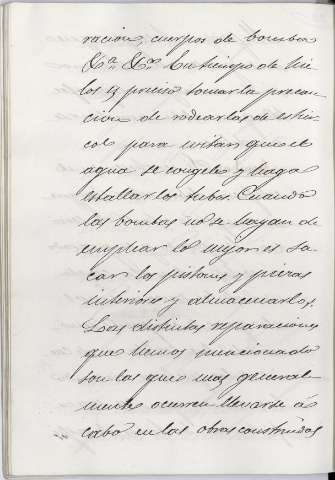 racion, cuerpos de bomba
&ª. &ª. En tiempo de hie
los es preciso tomar la precau
cion de rodearlas de estier
col para evitar que el
agua se congele y haga
estallar los tubos. Cuando
las bombas no se hayan de
emplear lo mejor es sa
car los pistones y piezas
interiores y almacenarlos.
Las distintas reparaciones
que hemos mencionado
son las que mas general
mente ocurren llevarse á
cabo en las obras construidas